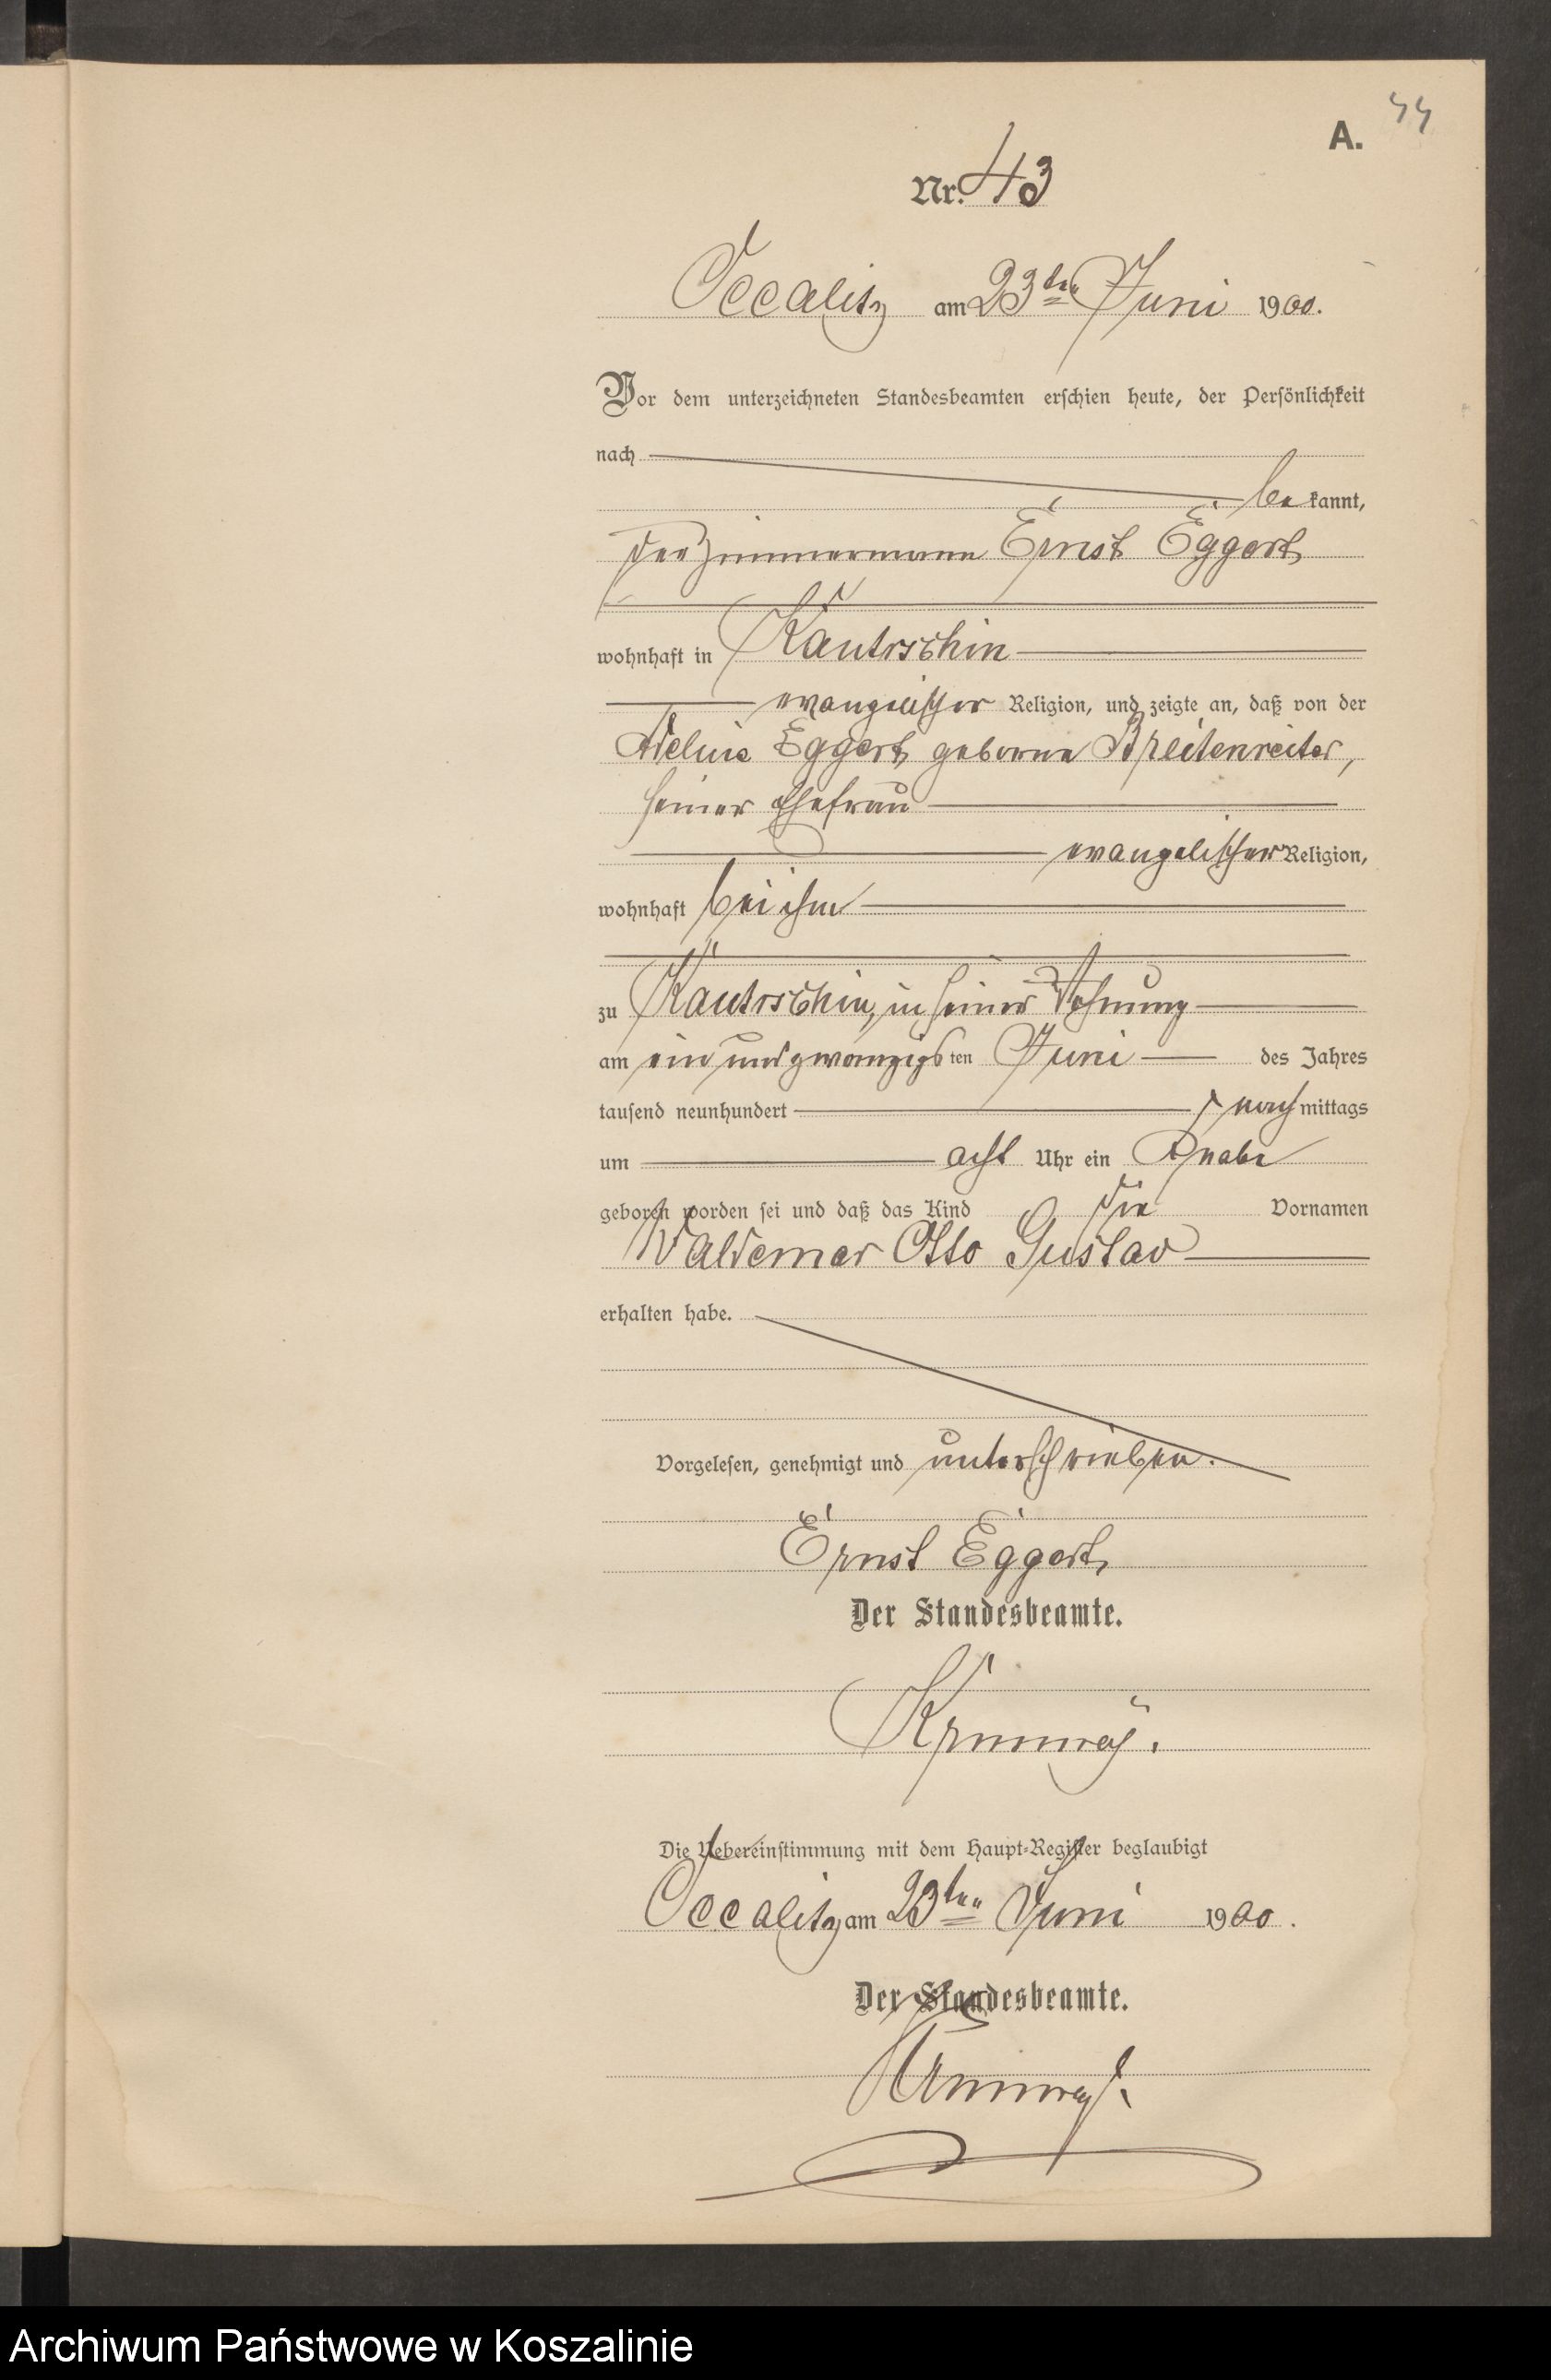 44
A.
Nr. 43
Occalitz am 23ten Juni 1900.
Vor dem unterzeichneten Standesbeamten erschien heute, der Persönlichkeit
nach
be kannt,
der Zimmermann Ernst Eggert
wohnhaft in Kautrschin
evangelischer Religion, und zeigte an, daß von der
Eggert geborene Breitenreiter,
seiner Ehefrau
evangelischer Religion,
wohnhaft bei ihm
zu Kautrschin, in seiner Wohnung
am ein und zwanzigs ten Juni des Jahres
tausend neunhundert nach mittags
um acht Uhr ein Knabe
geboren worden sei und daß das Kind die Vornamen
Waldemar Otto Gustav
erhalten habe.
Vorgelesen, genehmigt und unterschrieben.
Ernst Eggert
Der Standesbeamte.
Die Uebereinstimmung mit dem Haupt-Register beglaubigt
Occalitz am 23ten Juni 1900.
Der Standesbeamte.
Archiwum Państwowe w Koszalinie